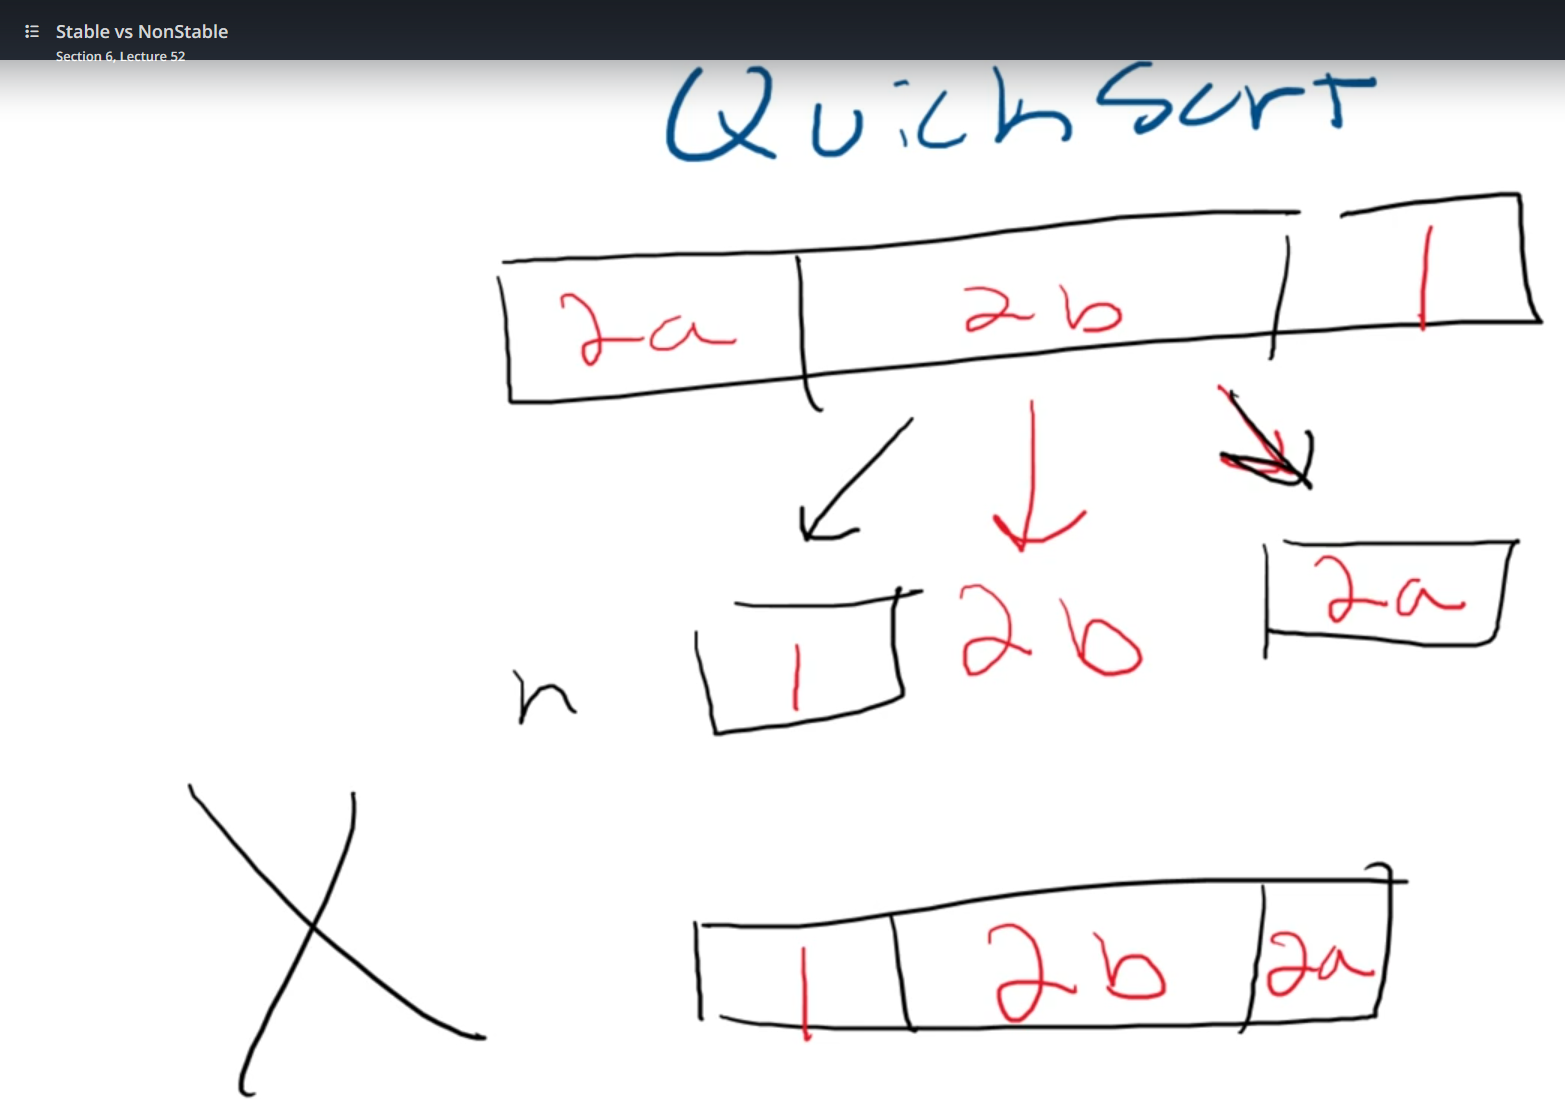 Stable vs NonStable
Section 6, Lecture 52
QuickSort
2a 2b 1
2a
1 2b
n
1 2b 2a